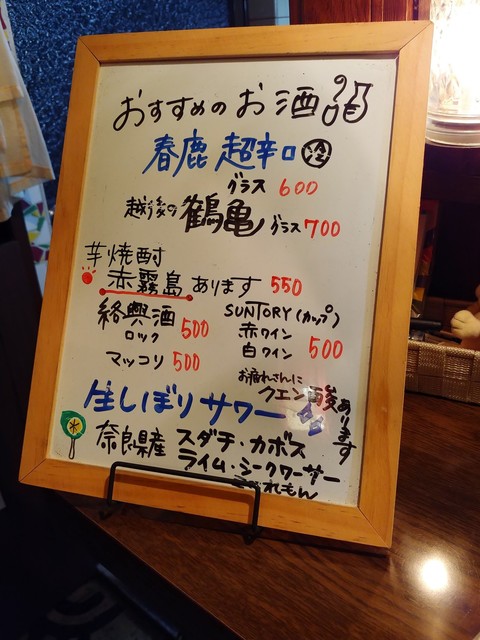 おすすめのお酒
春鹿 超辛口 冷
グラス 600
越後の鶴亀 グラス 700
芋焼酎
赤霧島 あります 550
紹興酒
ロック 500
マッコリ 500
SUNTORY (カップ)
赤ワイン
白ワイン 500
お疲れさんに
クエン酸あります
生しぼりサワー
奈良県産 スダチ・カボス
ライム・シークワーサー
れもん